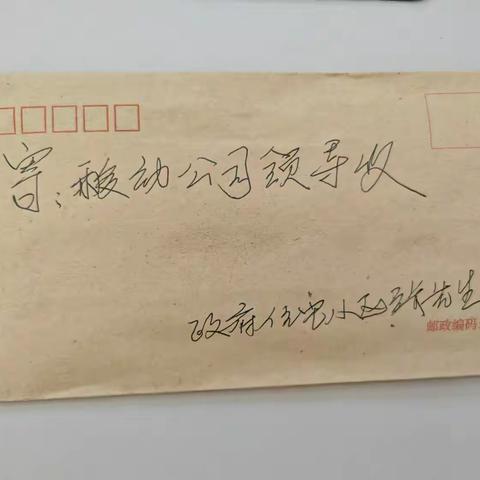 寄：移动公司领导收
政府住宅小区 先生
邮政编码